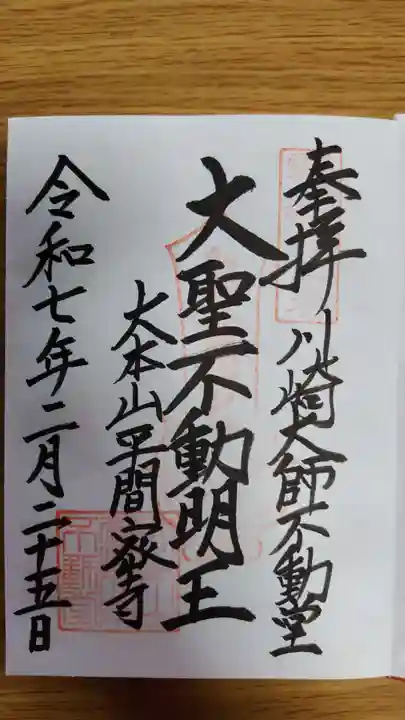 奉拝
川崎大師不動堂
大聖不動明王
大本山平間寺
令和七年二月二十五日